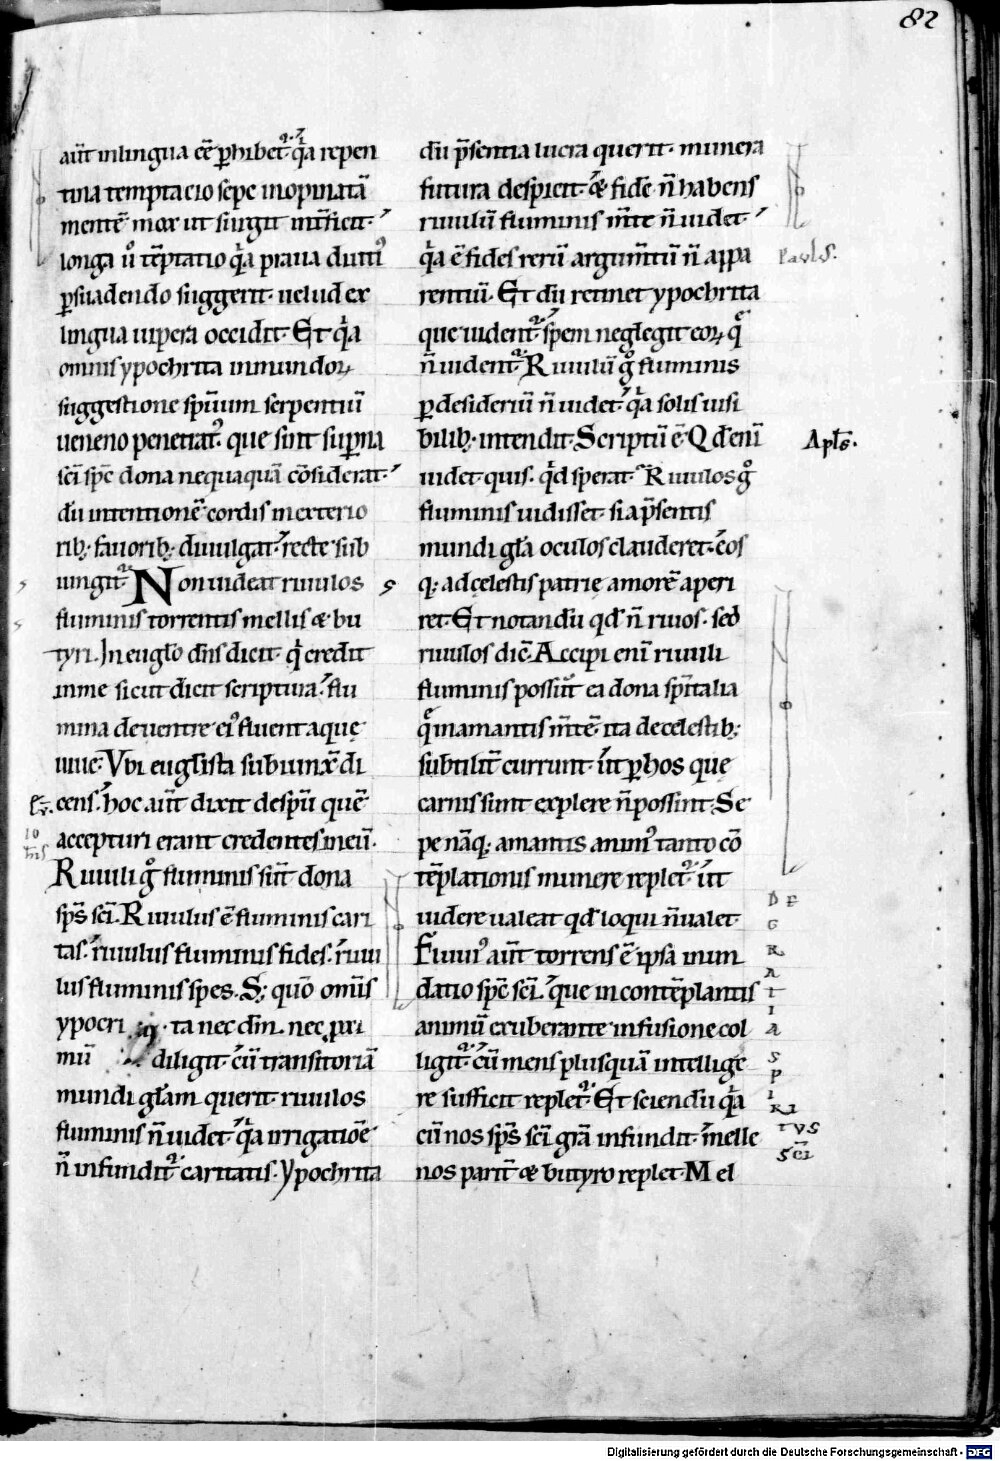 82
aut̄ in lingua eē p̄hibet᷑. q̄a repen
tina temptacio sepe inopinatā
mentē mox ut surgit int̄ficit.
longa u̾ tēptatio q̄a praua diuti᾿
p̱suadendo suggerit. uelud ex
lingua uipera occidit. Et q̄a
omnis ypochrita inmundoꝝ
suggestione spūum serpentiū
ueneno penetrat᷑. que sunt sup̱na
sc̄i spc̄ dona nequaquā cōsiderat.
dū intentionē cordis in exterio
rib; fauorib; diuulgat. recte sub
iungit᷑. Non uideat riuulos
fluminis torrentis mellis & bu
tyri. In eugl̄o dn̄s dicit. q̄ credit
in me sicut dicit scriptura. flu
mina de uentre ei᾿ fluent aquę
uiuę. Vbi eugl̄ista subiunx̄ di
cens. hoc aut̄ dixit de spū quē
accepturi erant credentes in eū.
Riuuli g̊ fluminis sūt dona
sp̄s sc̄i. Riuulus ē fluminis cari
tas. riuulus fluminis fides. riuu
lus fluminis spes. S; quō omīs
ypocri ta nec dm̄. nec pxi
mū diligit. cū transitoriā
mundi gl̄am querit. riuulos
fluminis n̄ uidet. q̄a irrigatiōe
n̄ infundit᷑ caritatis. Ypochrita
dū p̄sentia lucra querit. munera
futura despicit. & fidē n̄ habens
riuulū fluminis m̄te n̄ uidet.
q̄a ē fides rerū argum̄tū n̄ appa
rentiū. Et dū retinet ypochrita
que uident᷑. spem neglegit eoꝝ q̄
n̄ uident᷑. Riuulū g̊ fluminis
p̱ desideriū n̄ uidet. q̄a solis uisi
bilib; intendit. Scriptū ē. Qd̄ enī
uidet quis. q̄d sperat. Riuulos g̊
fluminis uidisset. si a p̄sentis
mundi gl̄a oculos clauderet. eos
q; ad cęlestis patrię amorē aperi
ret. Et notandū qd̄ n̄ riuos. sed
riuulos dic̄. Accipi enī riuuli
fluminis possūt ea dona sp̄italia
q̄ in amantis m̄tē ita de celestib;
subtilit̄ currunt. ut p̱ hos que
carnis sunt explere n̄ possint. Se
pe nāq; amantis anim᾿ tanto cō
tēplationis munere replet᷑. ut
uidere ualeat qd̄ loqui n̄ ualet.
Fluui᾿ aut̄ torrens ē ipsa inun
datio spc̄ sc̄i. que in contēplantis
animū exuberante infusione col
ligit᷑. cū mens plus quā intellige
re sufficit replet᷑. Et sciendū q̄a
cū nos sp̄s sc̄i gr̄a infundit. melle
nos parit̄ & butyro replet. Mel
Pauls.
Apl̄s.
DE
G
R
A
T
I
A
S
P
I
RI
TVS
Sc̄i